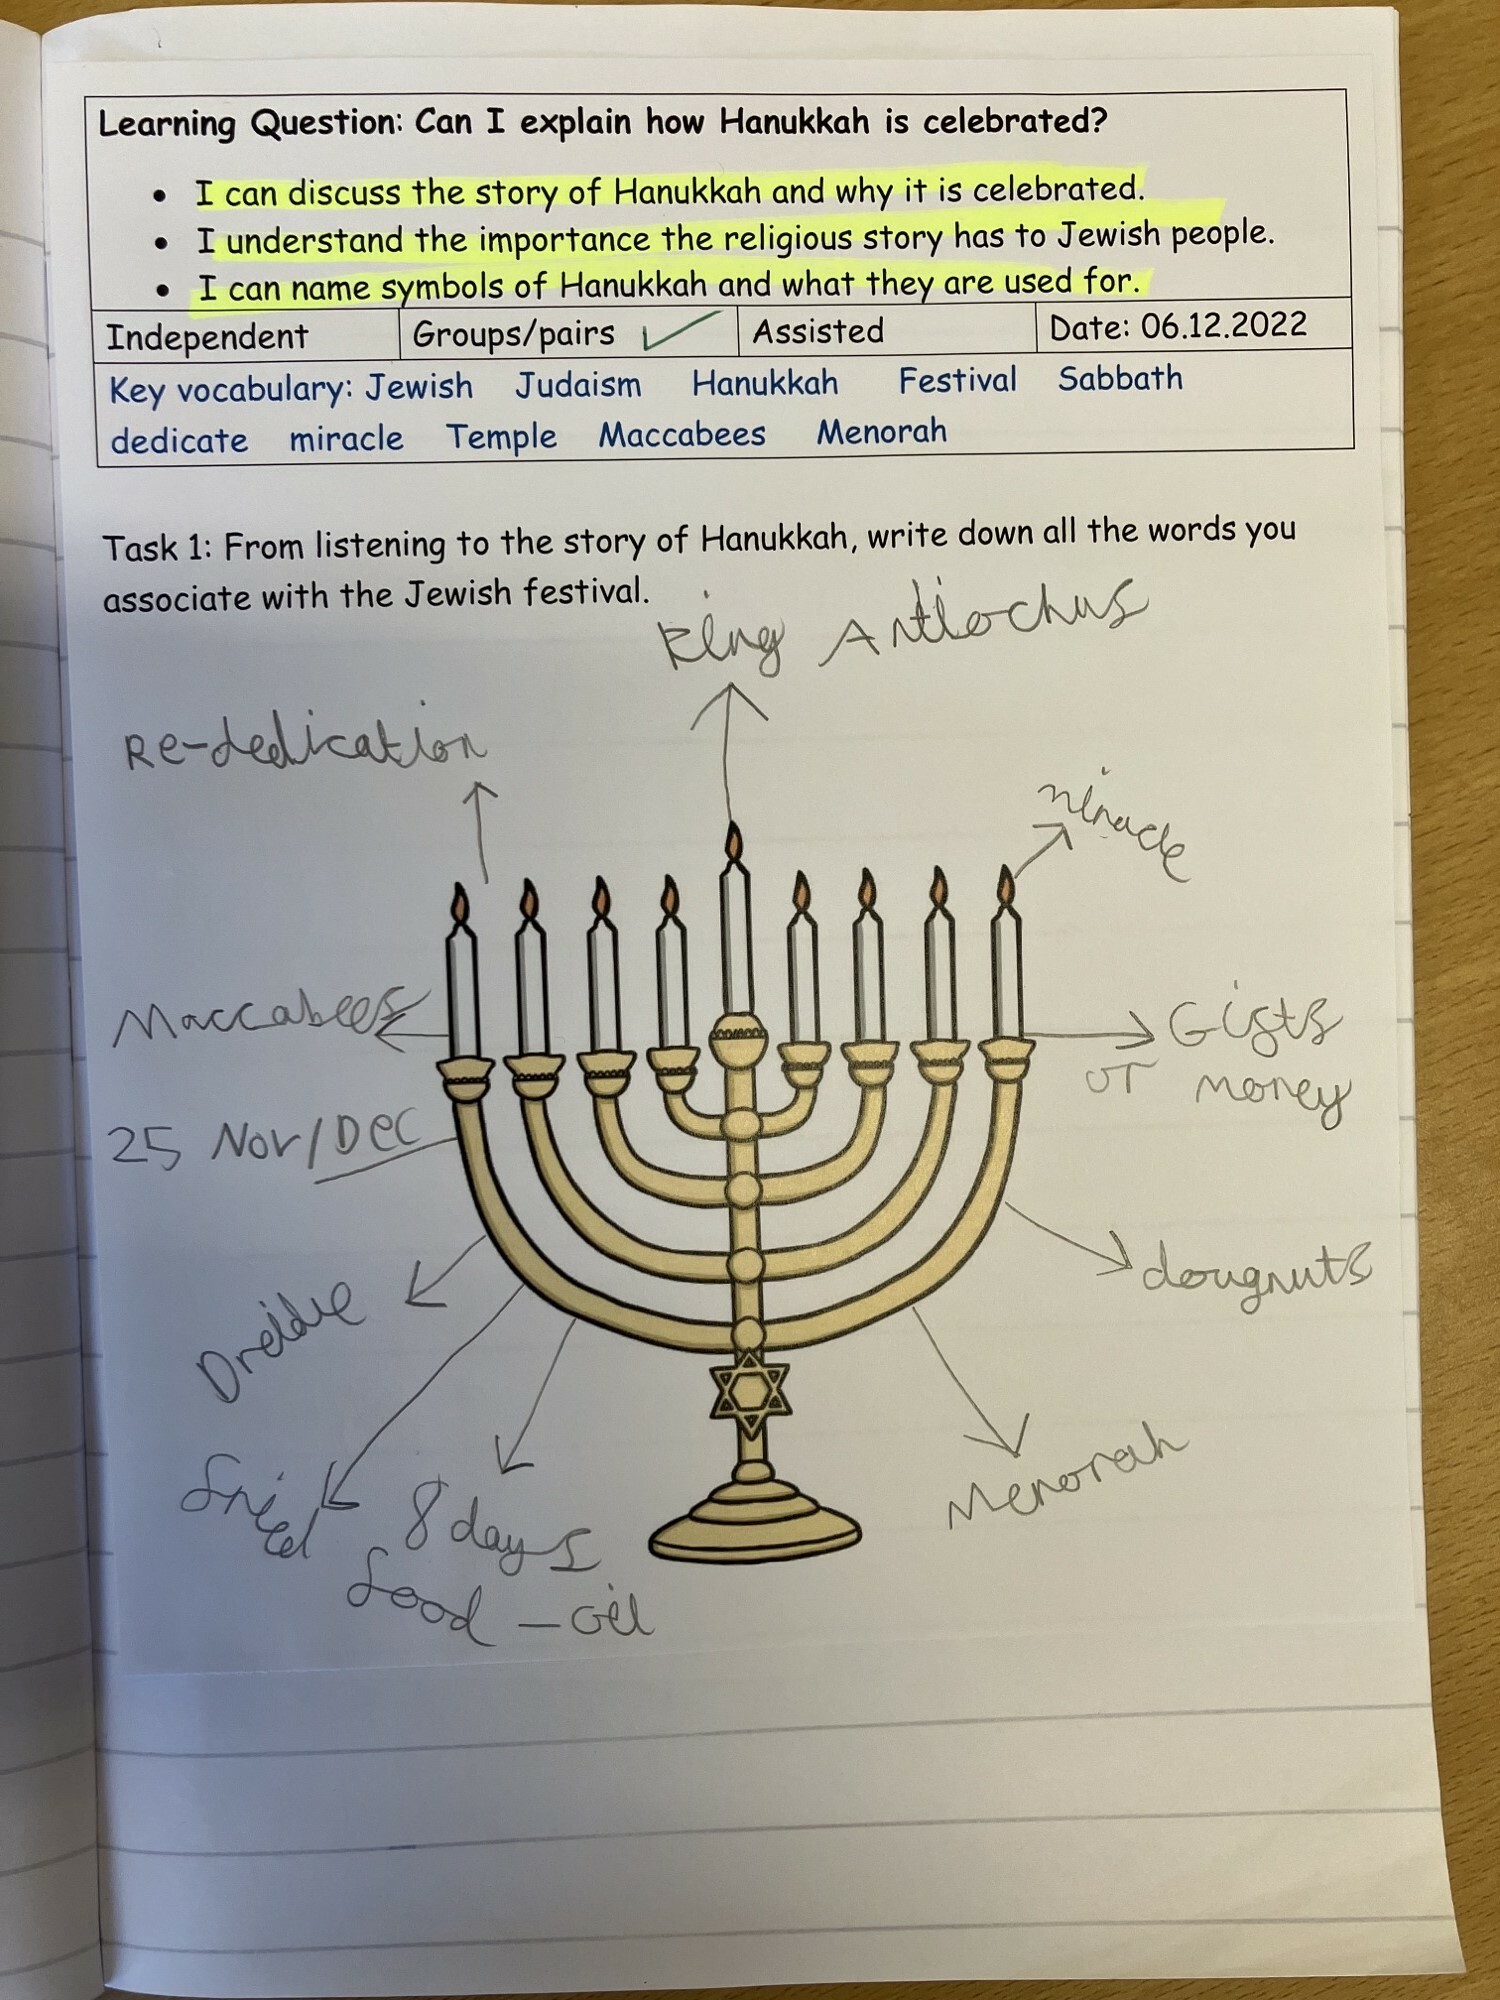 Learning Question: Can I explain how Hanukkah is celebrated?
• I can discuss the story of Hanukkah and why it is celebrated.
• I understand the importance the religious story has to Jewish people.
• I can name symbols of Hanukkah and what they are used for.
Independent Groups/pairs ✓ Assisted Date: 06.12.2022
Key vocabulary: Jewish Judaism Hanukkah Festival Sabbath
dedicate miracle Temple Maccabees Menorah
Task 1: From listening to the story of Hanukkah, write down all the words you
associate with the Jewish festival.
King Antiochus
Re-dedication
miracle
Maccabees
Gifts
or money
25 Nov/Dec
dougnuts
Dreidle
Menorah
fried
8 days
food - oil